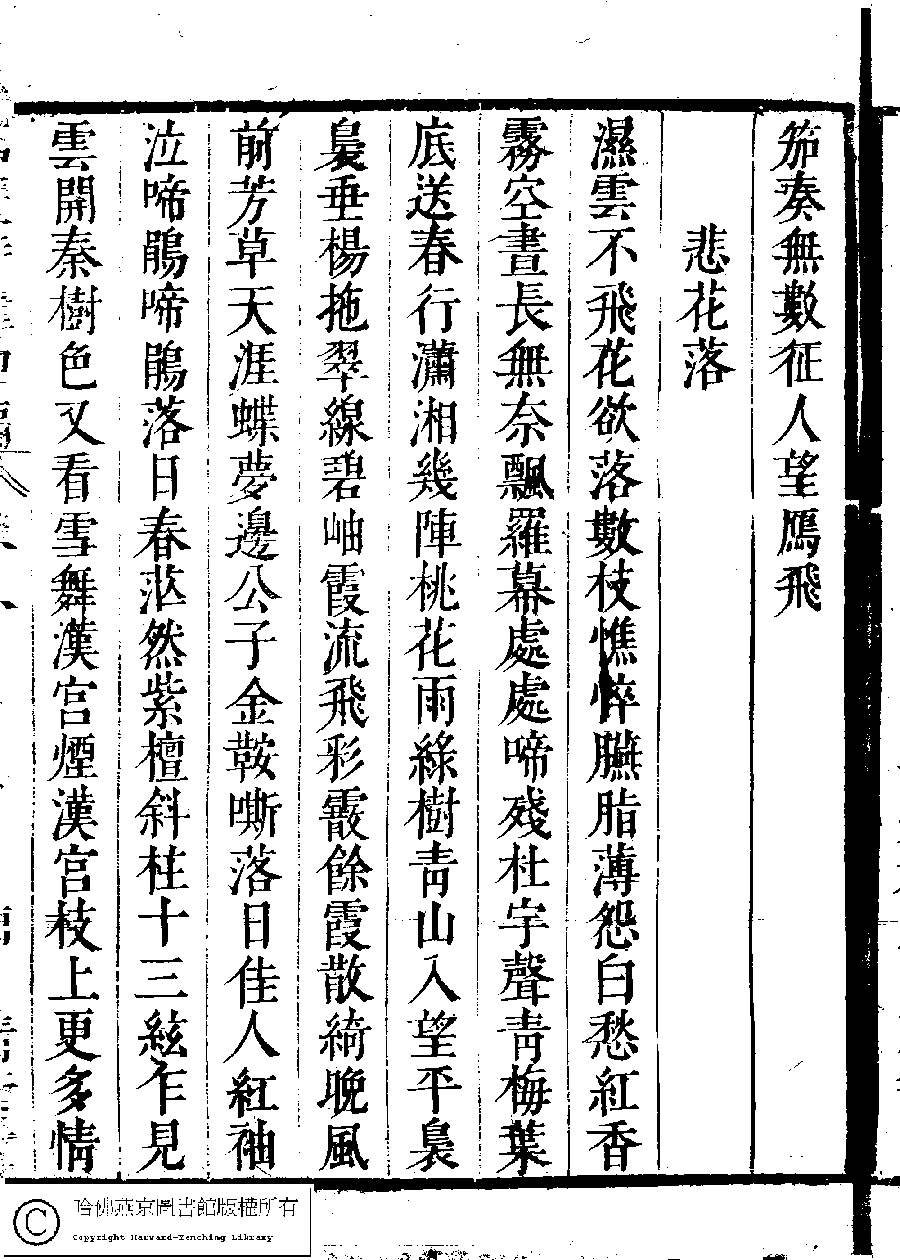 笳奏無數征人望鴈飛
悲花落
濕雲不飛花欲落數枝憔悴臙脂薄怨白愁紅香
霧空晝長無奈飄羅幕處處啼殘杜宇聲青梅葉
底送春行瀟湘幾陣桃花雨綠樹青山入望平裊
裊垂楊拖翠線碧岫霞流飛彩霰餘霞散綺晚風
前芳草天涯蝶夢邊公子金鞍嘶落日佳人紅袖
泣啼鵑啼鵑落日春茫然紫檀斜柱十三絃乍見
雲開秦樹色又看雪舞漢宮煙漢宮枝上更多情
哈佛燕京圖書館版權所有
Copyright Harvard-Yenching Library